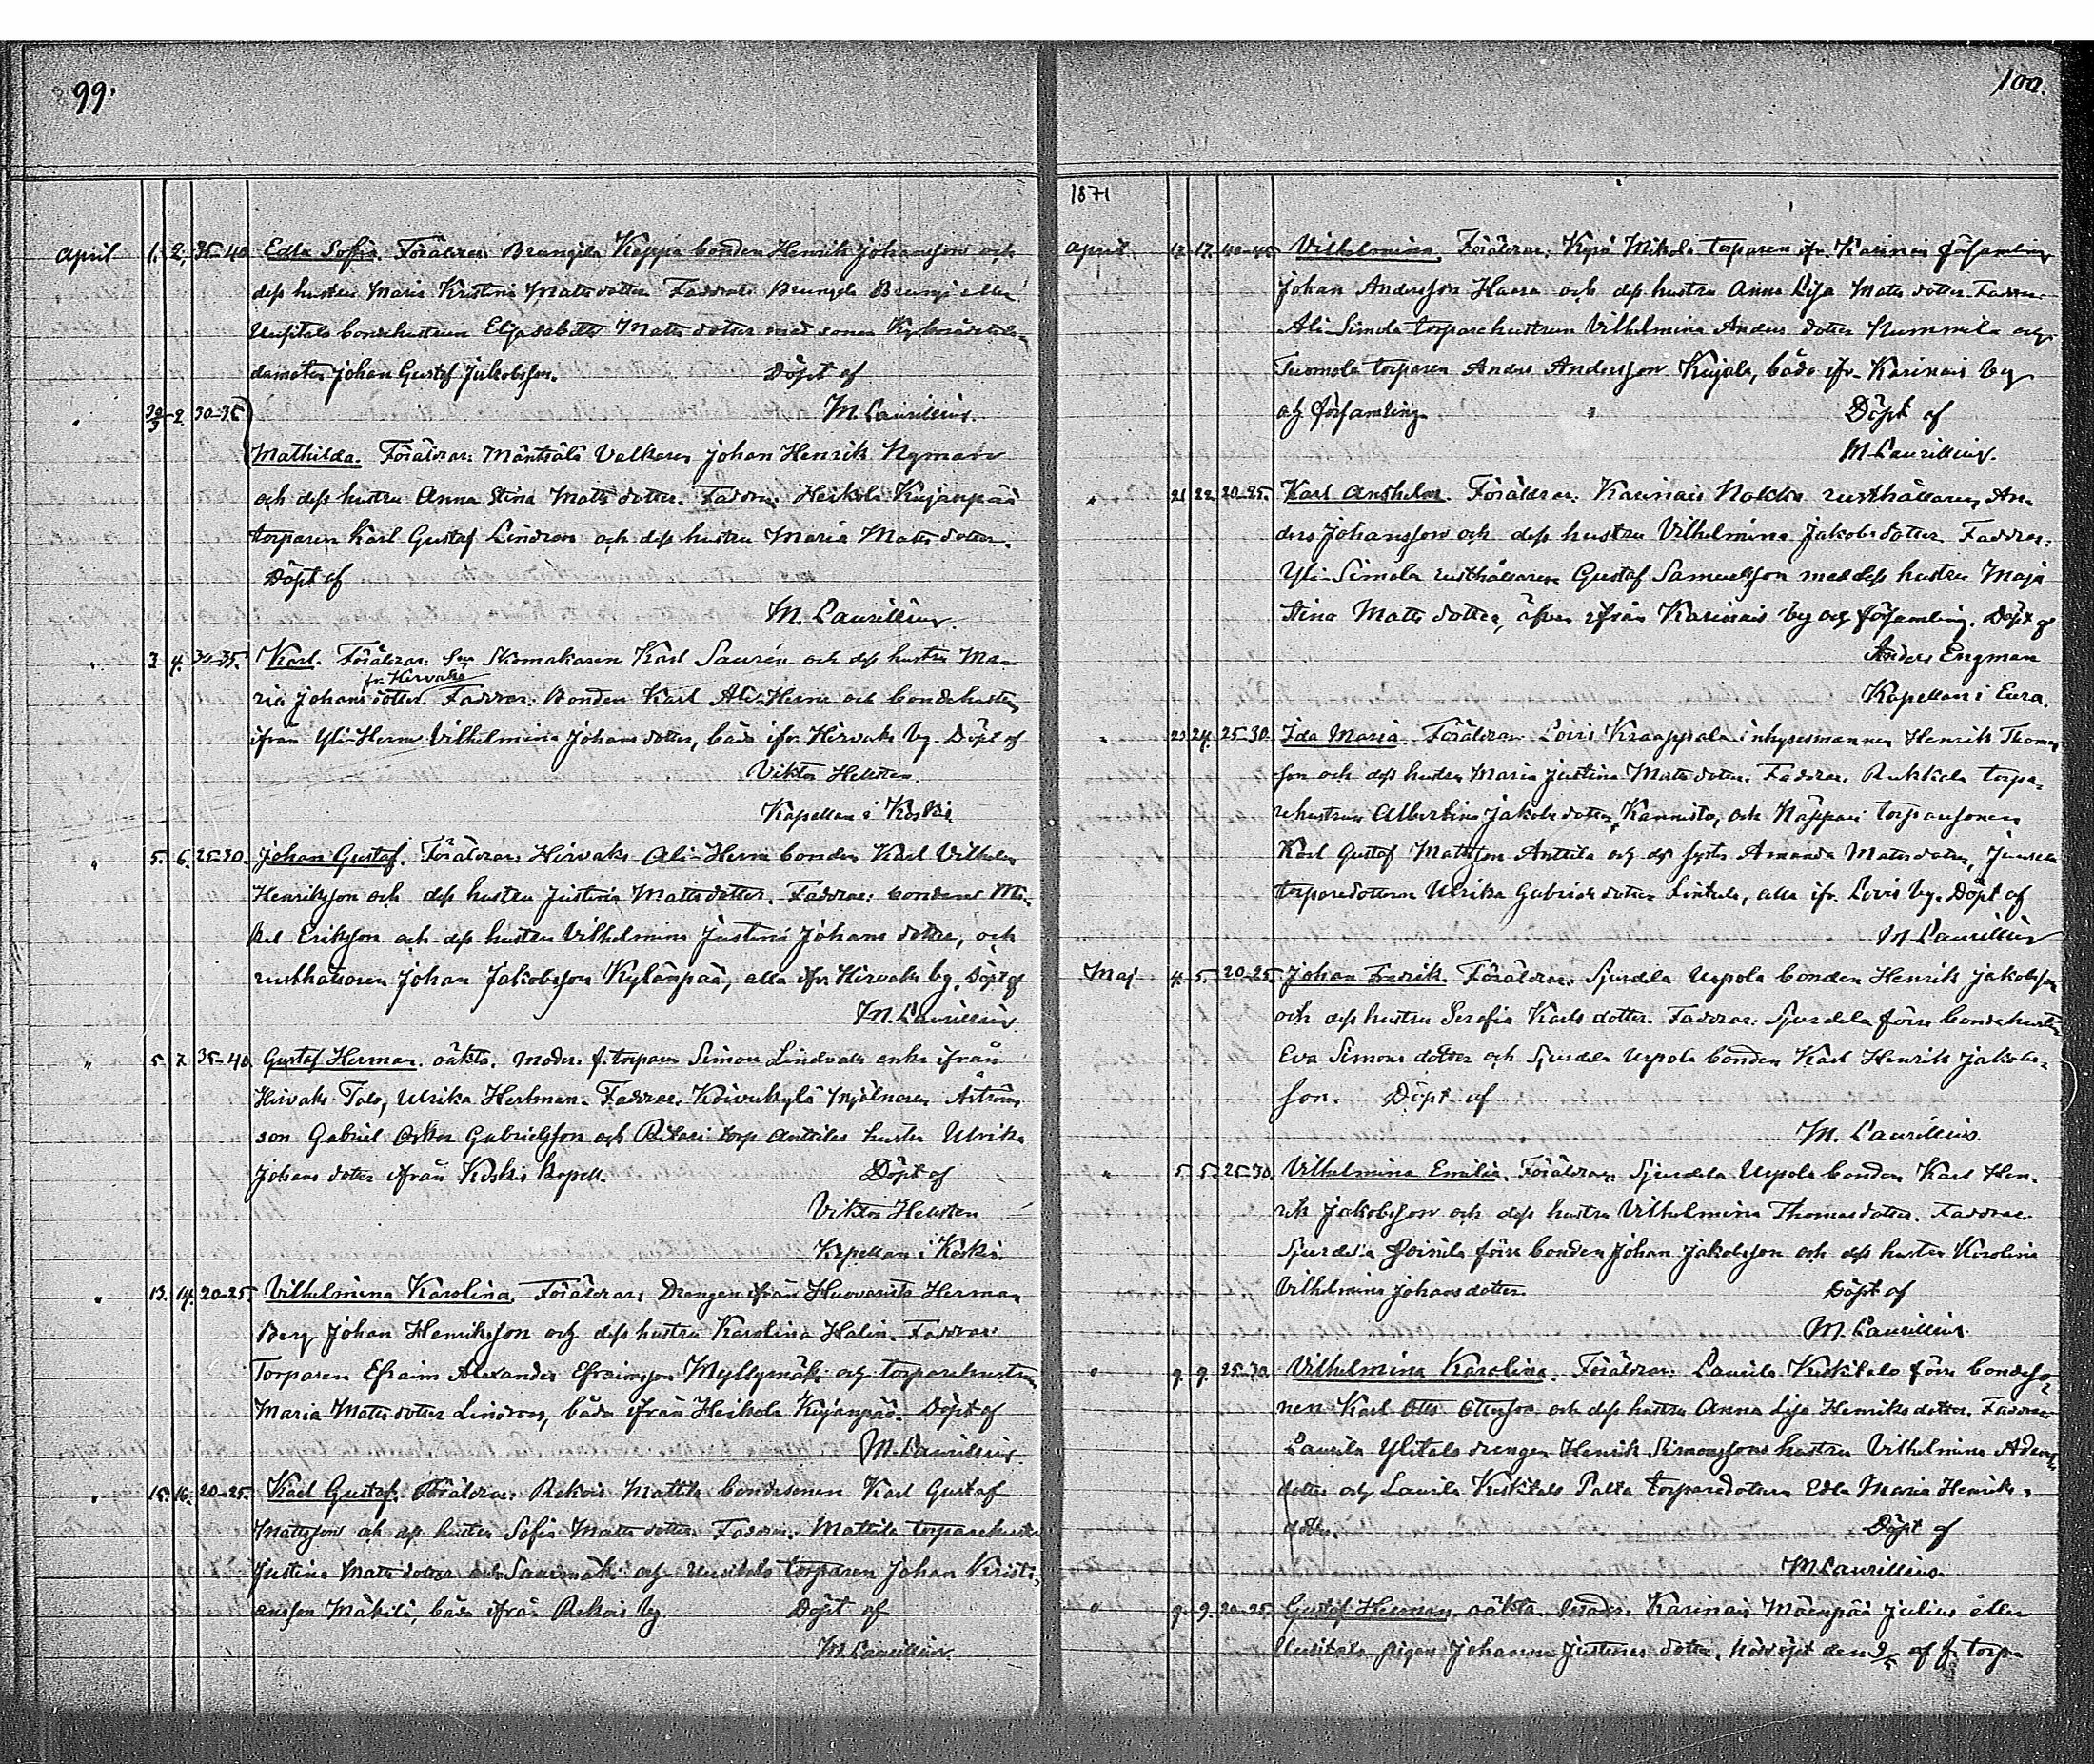 99.
April 1. 2. 35-40 Edla Sofia. Föräldrar: Brungila Keppa bonden Henrik Johansson och
dess hustru Maria Kristina Mats dotter. Faddrar: Brungila Brungi eller
Uusitalo bondehustrun Elisabetta Mats dotter med sonen
Johan Gustaf Jakobsson. Döpt af
" 30/3 2 30-35 M. Laurillius.
Mathilda. Föräldrar: Mäntsälä Valkares Johan Henrik Nyman
och dess hustru Anna Stina Mats dotter. Faddrar: Heikola Kujanpää
torparen Karl Gustaf Lindroos och dess hustru Maria Mats dotter.
Döpt af
M. Laurillius.
" 3. 4. 30-35. Karl. Föräldrar: Skomakaren Karl Saurén och dess hustru Ma-
fr. Hirvaks
ria Johans dotter. Faddrar: Bonden Karl Ali-Herne och bondehustrun
ifrån Yli-Herne Vilhelmina Johans dotter, båda ifr. Hirvaks by. Döpt af
Viktor Hellsten.
Kapellan i Koskis
" 5. 6. 25-30. Johan Gustaf. Föräldrar: Hirvaks Ali-Herne bonden Karl Vilhelm
Henriksson och dess hustru Justina Matts dotter. Faddrar: bonden Mi-
kel Eriksson och dess hustru Vilhelmina Justina Johans dotter, och
rusthållaren Johan Jakobsson Kylänpää, alla ifr. Hirvaks by. Döpt af
M. Laurillius
" 5. 7. 35-40 Gustaf Herman. oäkta. Moder: f. torparen Simon Lindvalls enka ifrån
Hirvaks Talo, Ulrika Herman. Faddrar: Koivukylä mjölnaren Åströms
son Gabriel Oskar Gabrielsson och torp. Anttilas hustru Ulrika
Johans dotter ifrån Koskis kapell. Döpt af
Viktor Hellsten
Kapellan i Koskis.
" 13. 14. 20-25. Vilhelmina Karolina. Föräldrar: Drengen ifrån Huovarists Herman
Berg Johan Henriksson och dess hustru Karolina Halin. Faddrar:
Torparen Efraim Alexander Efraimsson Myllymäki och torparehustrun
Maria Mats dotter Lindroos, båda ifrån Heikola Kujanpää. Döpt af
M. Laurillius.
" 15. 16. 20-25. Karl Gustaf. Föräldrar: Rekois Mattila bondesonen Karl Gustaf
Mattsson och dess hustru Sofia Matts dotter. Faddrar: Mattila torparehustrun
Justina Matts dotter Saarimäki och Uusitalo torparen Johan Kristi-
ansson Mäkilä, båda ifrån Rekois by. Döpt af
M. Laurillius
100.
1871
April 17. 17. 40-45 Vilhelmina. Föräldrar: Kyrö Mikola torparen ifr. Karinais församling
Johan Andersson Haara och dess hustru Anna Lisa Mats dotter. Faddrar:
Ali-Simola torparehustrun Vilhelmina Anders dotter Nummila och
Tuomola torparen Anders Andersson Kujala, båda ifr. Karinais by
och församling. Döpt af
M. Laurillius.
" 21. 22. 20-25. Karl Anshelm. Föräldrar: Karinais Nokka rusthållaren An-
ders Johansson och dess hustru Vilhelmina Jakobs dotter. Faddrar:
Yli-Simola rusthållaren Gustaf Samuelsson med dess hustru Maja
Stina Matts dotter, äfven ifrån Karinais by och församling. Döpt af
Anders Engman
Kapellan i Eura.
" 23 24. 25-30. Ida Maria. Föräldrar: Loiris Kraappala inhysesmannen Henrik Thomas-
son och dess hustru Maria Justina Matts dotter. Faddrar: Rukkila torpa-
rehustrun Albertina Jakobs dotter Kannisto, och Näppari torparesonen
Karl Gustaf Mattsson Anttila och dess syster Amanda Mats dotter,
torparedottern Ulrika Gabriels dotter, alla ifr. Loiris by. Döpt af
M Laurillius
Maj 4. 5. 20-25. Johan Fredrik. Föräldrar: Sjurdela Uspola bonden Henrik Jakobsson
och dess hustru Serafia Karls dotter. Faddrar: Sjurdela förre bondehustrun
Eva Simons dotter och Sjurdela Uspola bonden Karl Henrik Jakobs-
son. Döpt af
M. Laurillius.
" 5. 5. 25-30. Vilhelmina Emilia. Föräldrar: Sjurdela Uspola bonden Karl Hen-
rik Jakobsson och dess hustru Vilhelmina Thomas dotter. Faddrar:
Sjurdela förre bonden Johan Jakobsson och dess hustru Karolina
Vilhelmina Johans dotter. Döpt af
M. Laurillius.
" 9. 9. 25-30. Vilhelmina Karolina. Föräldrar: Laurila Keskitalo förre bondeso-
nen Karl Otto Ottosson och dess hustru Anna Lisa Henriks dotter. Faddrar:
Laurila Ylitalo drengen Henrik Simonssons hustru Vilhelmina Adams
dotter och Laurila Keskitalo Palta torparedottern Edla Maria Henriks
dotter. Döpt af
M Laurillius.
" 9. 9. 20-25. Gustaf Herman, oäkta. Moder: Karinais Mäenpää Julius eller
Uusitalo pigan Johanna Justina dotter. Nöddöpt den 9/5 af f. torpa-